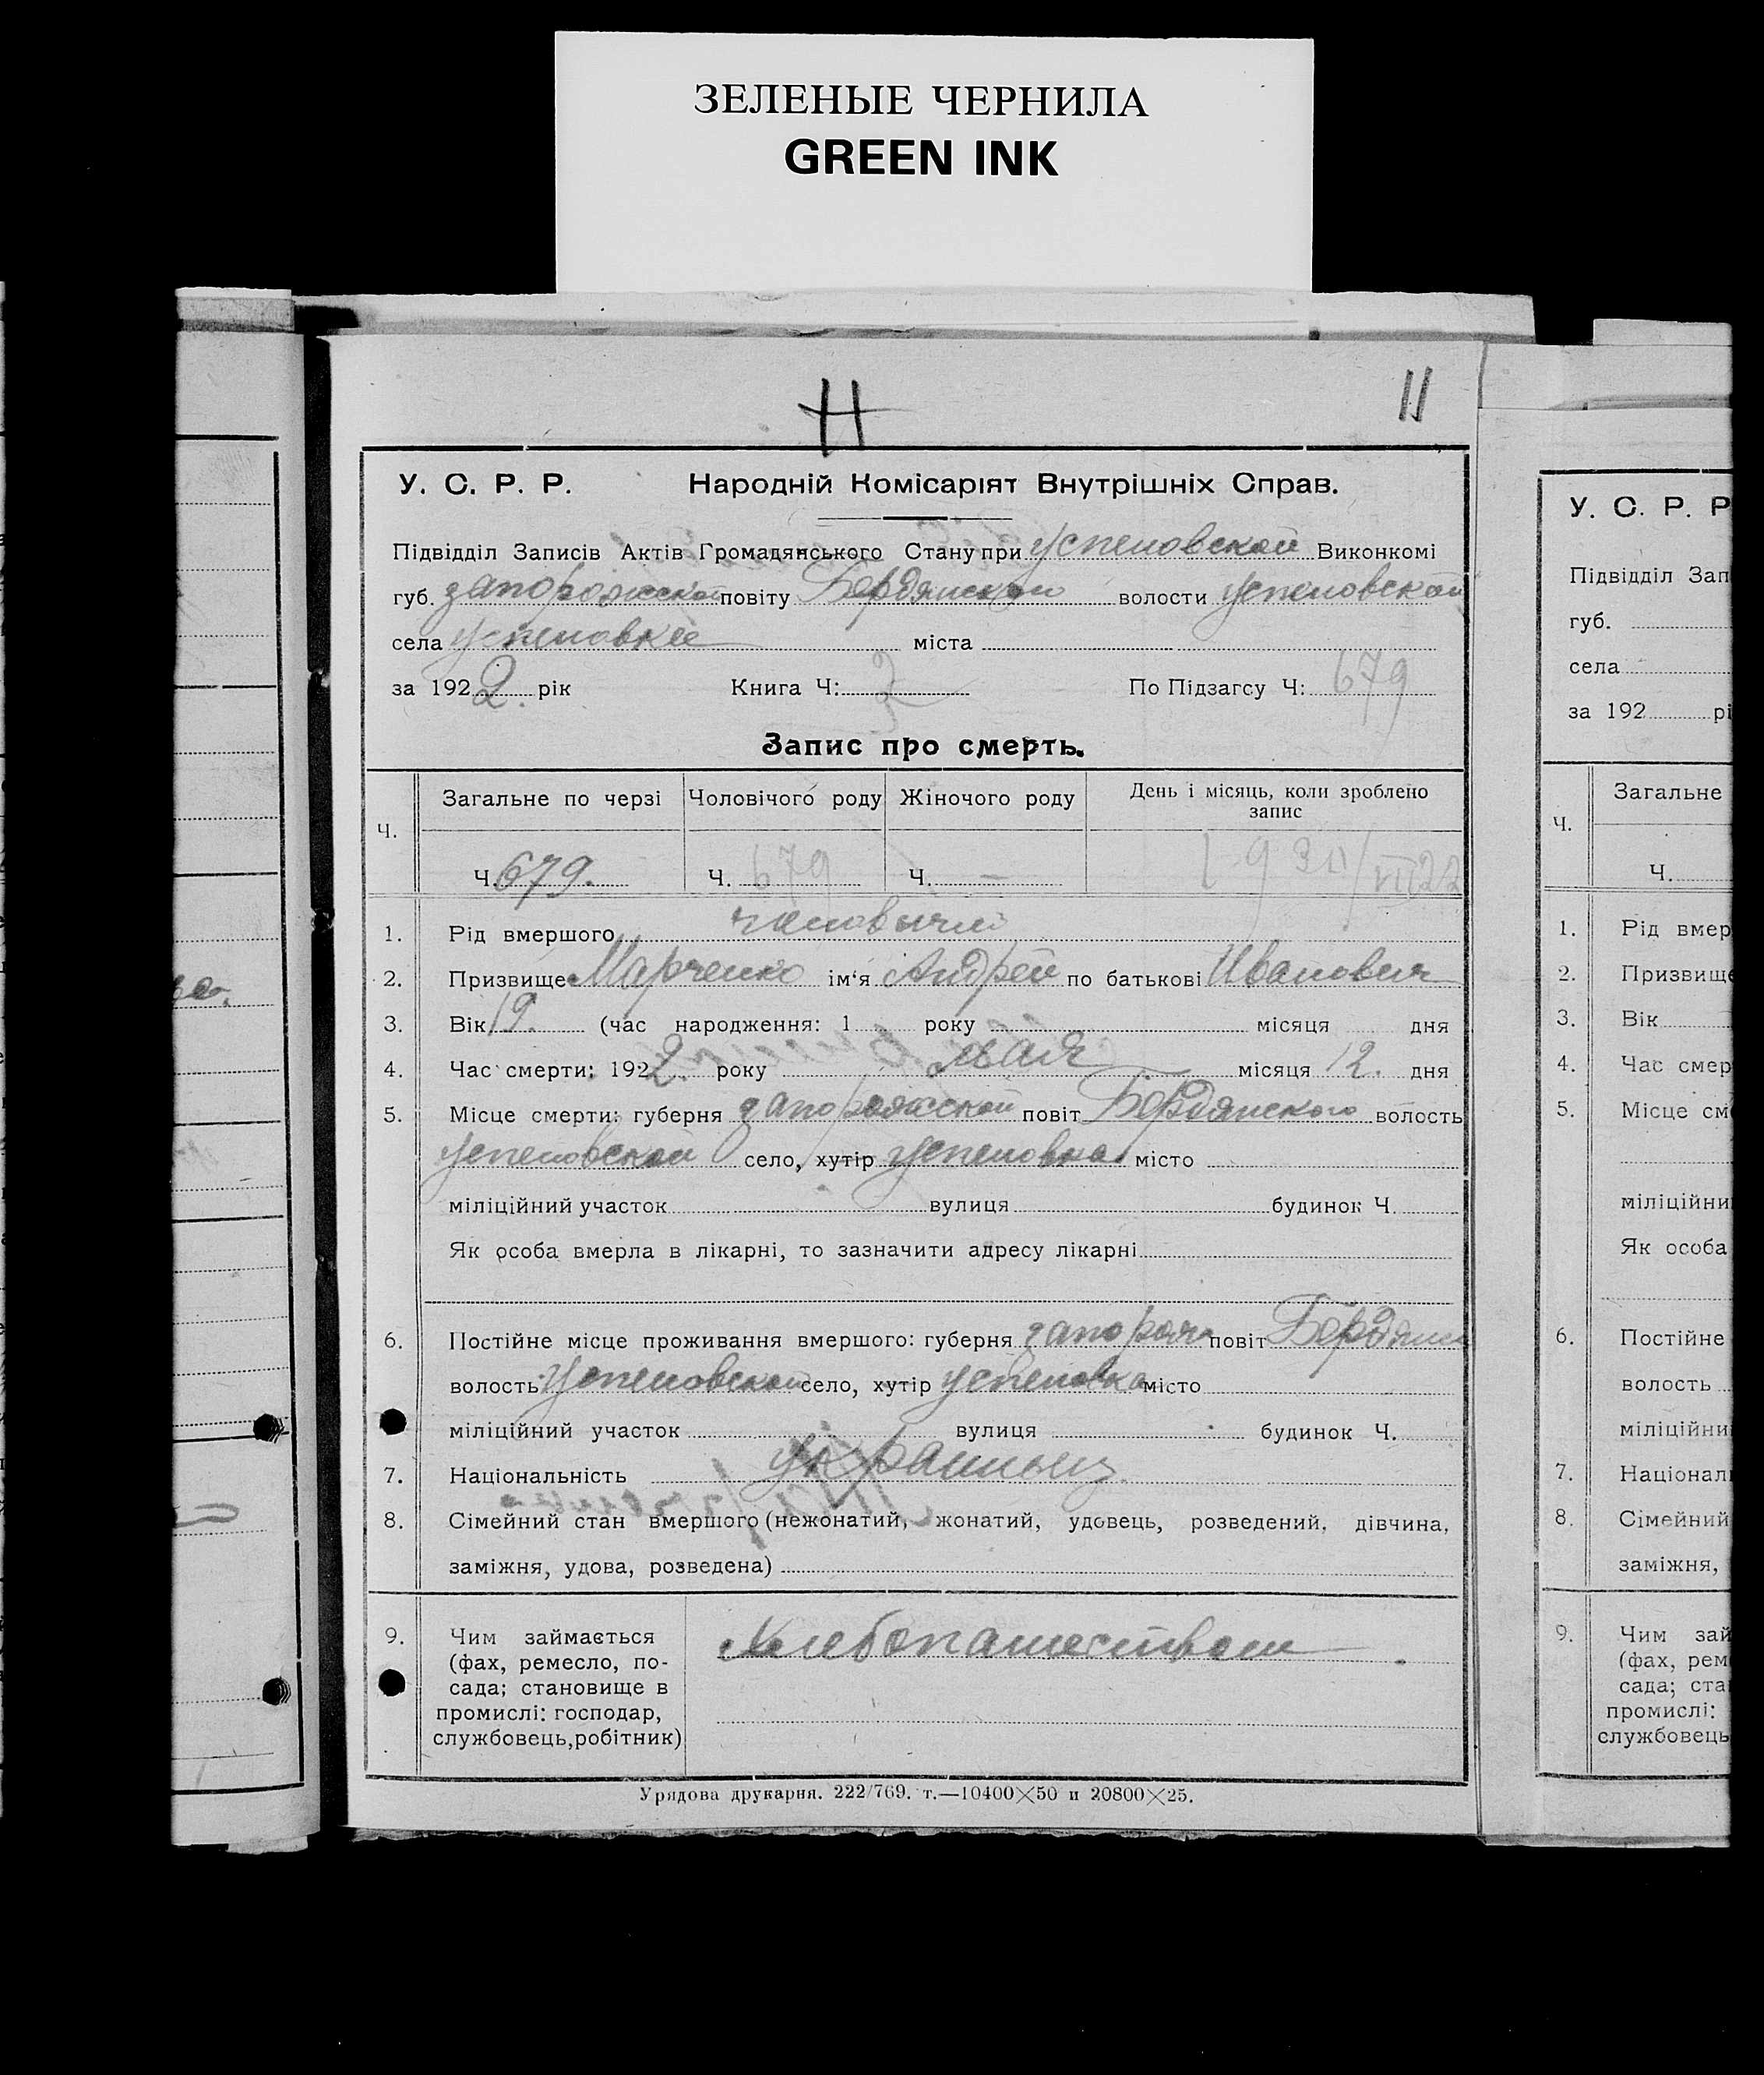 ЗЕЛЕНЫЕ ЧЕРНИЛА
GREEN INK
11
У. С. Р. Р. Народній Комісаріят Внутрішніх Справ.
Підвідділ Записів Актів Громадянського Стану при Успеновской Виконкомі
губ. Запорожской повіту Бердянского волости Успеновской
села Успеновке міста
за 1922. рік Книга Ч: По Підзагсу Ч: 679
Запис про смерть.
Ч. Загальне по черзі Чоловічого роду Жіночого роду День і місяць, коли зроблено запис
Ч. 679. Ч. 679 Ч. —
1. Рід вмершого
2. Призвище Марченко ім'я Андрей по батькові Иванович
3. Вік 19. (час народження: 1 року місяця дня
4. Час смерти: 1922. року мая місяця 12. дня
5. Місце смерти: губерня Запорожской повіт Бердянского волость
Успеновской село, хутір Успеновка місто
міліційний участок вулиця будинок Ч.
Як особа вмерла в лікарні, то зазначити адресу лікарні
6. Постійне місце проживання вмершого: губерня Запорож повіт Бердянск
волость Успеновской село, хутір Успеновка місто
міліційний участок вулиця будинок Ч.
7. Національність
8. Сімейний стан вмершого (нежонатий, жонатий, удовець, розведений, дівчина,
заміжня, удова, розведена)
9. Чим займається Хлебопашеством
(фах, ремесло, по-
сада; становище в
промислі: господар,
службовець, робітник)
Урядова друкарня. 222/769. т.—10400×50 и 20800×25.
У. С. Р. Р
Підвідділ Зап
губ.
села
за 192 рі
Ч. Загальне
Ч.
1. Рід вмер
2. Призвище
3. Вік
4. Час смер
5. Місце см
міліційни
Як особа
6. Постійне
волость
міліційни
7. Націонал
8. Сімейний
заміжня,
9. Чим зай
(фах, рем
сада; ста
промислі:
службовець